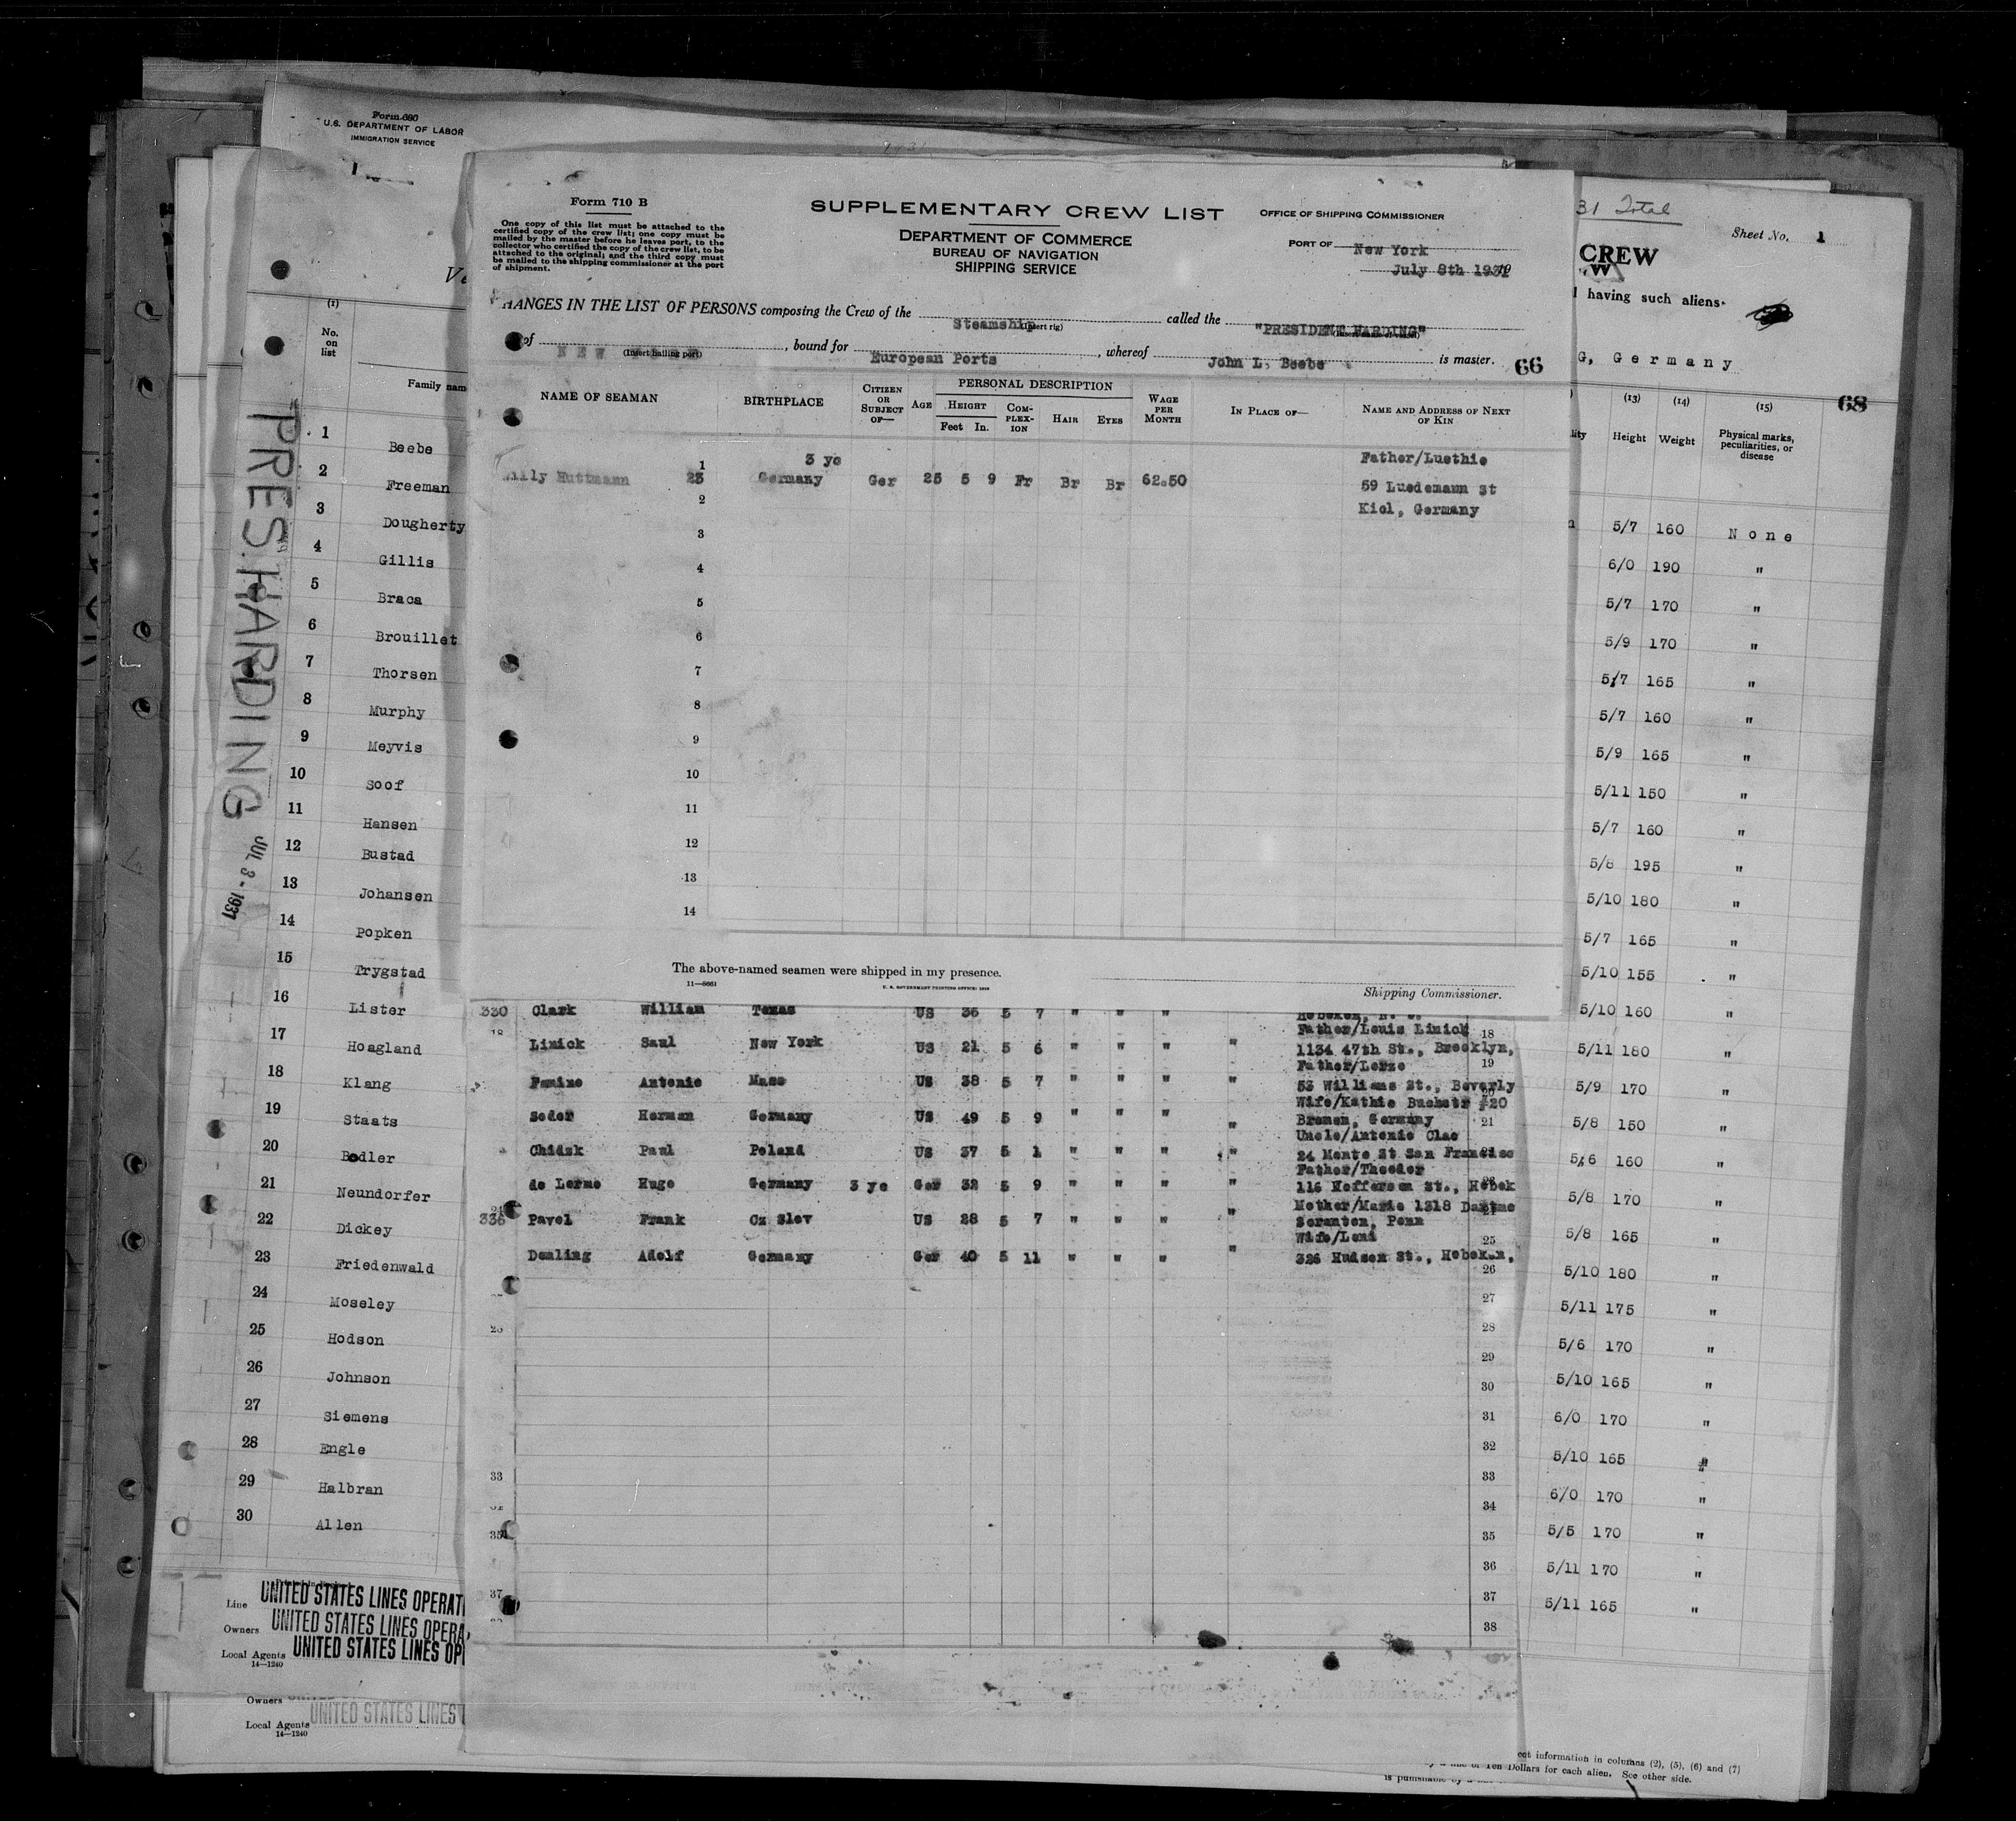 Form 680
U.S. DEPARTMENT OF LABOR
IMMIGRATION SERVICE
(1)
No. on list
Family nam
1 Beebe
2 Freeman
3 Dougherty
4 Gillis
5 Braca
6 Brouillet
7 Thorsen
8 Murphy
9 Meyvis
10 Soof
11 Hansen
12 Bustad
13 Johansen
14 Popken
15 Trygstad
16 Lister
17 Hoagland
18 Klang
19 Staats
20 Bodler
21 Neundorfer
22 Dickey
23 Friedenwald
24 Moseley
25 Hodson
26 Johnson
27 Siemens
28 Engle
29 Halbran
30 Allen
PRES. HARDING
JUL 3 - 1931
Line UNITED STATES LINES OPERATI
Owners UNITED STATES LINES OPERA
Local Agents UNITED STATES LINES OP
14—1240
Owners
Local Agents UNITED STATES LINES
14—1240
Form 710 B
One copy of this list must be attached to the
certified copy of the crew list; one copy must be
mailed by the master before he leaves port, to the
collector who certified the copy of the crew list, to be
attached to the original; and the third copy must
be mailed to the shipping commissioner at the port
of shipment.
SUPPLEMENTARY CREW LIST
DEPARTMENT OF COMMERCE
BUREAU OF NAVIGATION
SHIPPING SERVICE
OFFICE OF SHIPPING COMMISSIONER
PORT OF New York
July 8th 1931
HANGES IN THE LIST OF PERSONS composing the Crew of the Steamship (Insert rig) called the "PRESIDENT HARDING"
of NEW (Insert hailing port), bound for European Ports, whereof John L. Beebe is master. 66
NAME OF SEAMAN BIRTHPLACE CITIZEN OR SUBJECT OF— AGE PERSONAL DESCRIPTION HEIGHT Feet In. COMPLEXION HAIR EYES WAGE PER MONTH IN PLACE OF— NAME AND ADDRESS OF NEXT OF KIN
1 3 ye Father/Luethie
illy Huttmann 23 Germany Ger 25 5 9 Fr Br Br 62.50 59 Luedemann St
2 Kiel, Germany
3
4
5
6
7
8
9
10
11
12
13
14
The above-named seamen were shipped in my presence.
11—8661
U. S. GOVERNMENT PRINTING OFFICE
Shipping Commissioner.
330 Clark William Texas US 36 5 7 " " " Hoboken, N. J.
Father/Louis Linick 18
Linick Saul New York US 21 5 6 " " " " 1134 47th St., Brooklyn,
Father/Lerze 19
Antonio Mass US 38 5 7 " " " " 53 Williams St., Beverly
Wife/Kathie Buchstr #20
Seder Herman Germany US 49 5 9 " " " " Bremen, Germany 21
Uncle/Antonio Clac
Chidzk Paul Poland US 37 5 1 " " " " 24 Monte St San Francisco
Father/Theodor
de Lerme Hugo Germany 3 ye Ger 32 5 9 " " " " 116 Hefferson St., Hobok
Mother/Marie 1318
336 Pavel Frank Cz Slov US 28 5 7 " " " " Scranton, Penn
Wife/Leni 25
Demling Adolf Germany Ger 40 5 11 " " " " 326 Hudson St., Hoboken,
26
27
28
29
30
31
32
33 33
34
35 35
36
37 37
38
31 Total
Sheet No. 1
CREW
having such aliens
G, Germany
68
(13) (14) (15)
Height Weight Physical marks, peculiarities, or disease
5/7 160 None
6/0 190 "
5/7 170 "
5/9 170 "
5/7 165 "
5/7 160 "
5/9 165 "
5/11 150 "
5/7 160 "
5/8 195 "
5/10 180 "
5/7 165 "
5/10 155 "
5/10 160 "
5/11 180 "
5/9 170 "
5/8 150 "
5/6 160 "
5/8 170 "
5/8 165 "
5/10 180 "
5/11 175 "
5/6 170 "
5/10 165 "
6/0 170 "
5/10 165 "
6/0 170 "
5/5 170 "
5/11 170 "
5/11 165 "
information in columns (2), (5), (6) and (7)
Ten Dollars for each alien. See other side.
is punishable by a